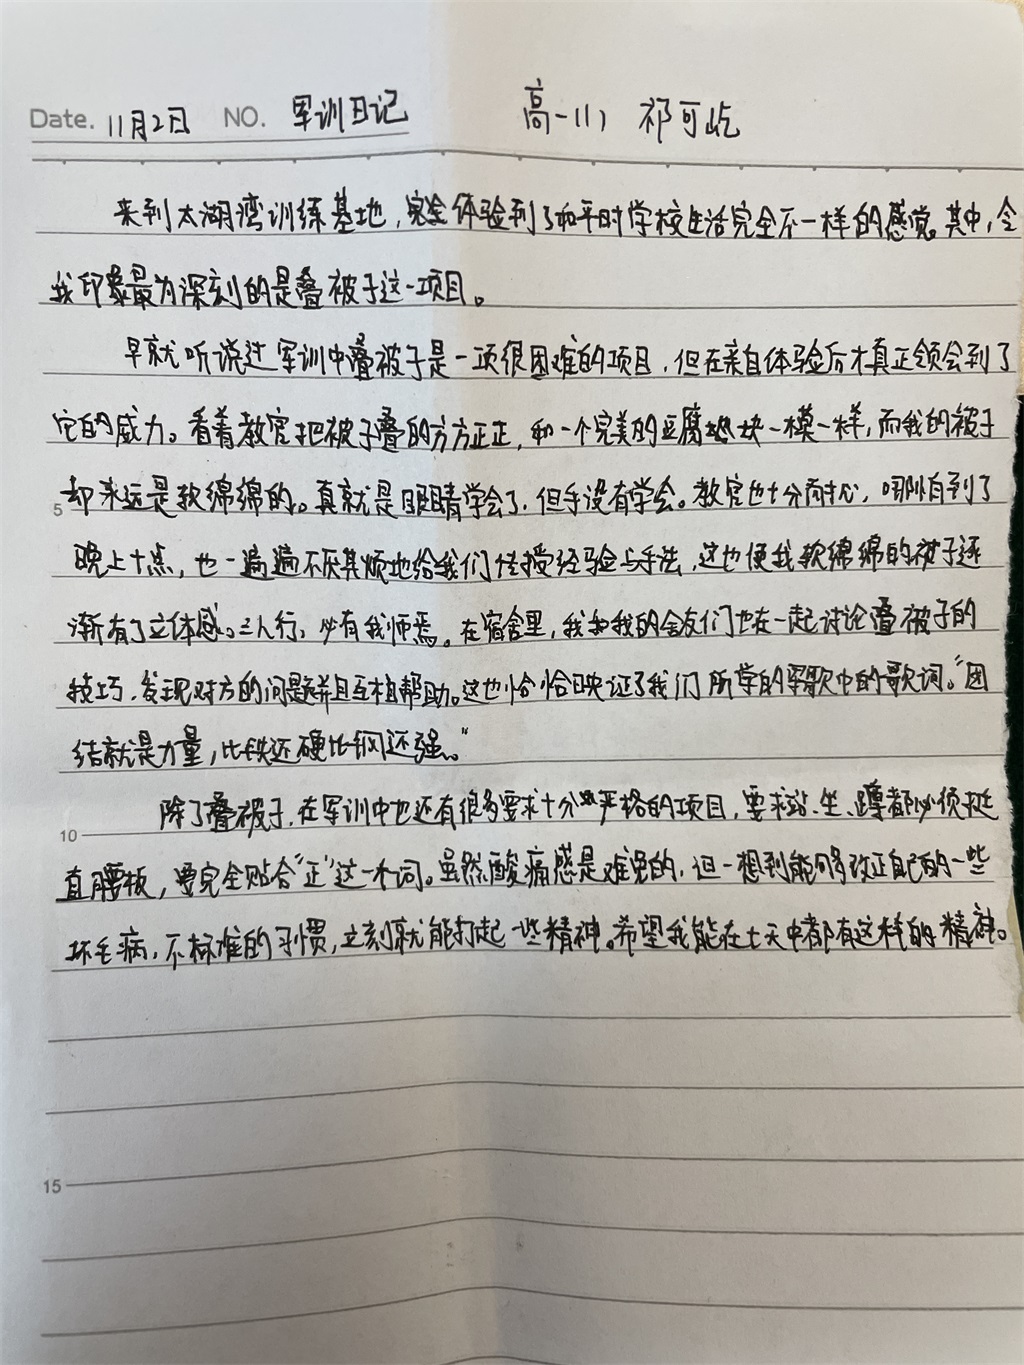 Date. 11月2日 NO. 军训日记 高一(1) 祁可屹
来到太湖湾训练基地，完全体验到了和平时学校生活完全不一样的感觉。其中，令
我印象最为深刻的是叠被子这一项目。
早就听说过军训中叠被子是一项很困难的项目，但在亲自体验后才真正领会到了
它的威力。看着教官把被子叠的方方正正，和一个完美的豆腐块一模一样，而我的被子
5 却永远是软绵绵的。真就是眼睛学会了，但手没有学会。教官也十分耐心，哪怕到了
晚上十点，也一遍遍不厌其烦地给我们传授经验与手法，这也使我软绵绵的被子逐
渐有了立体感。三人行，必有我师焉。在宿舍里，我和我的舍友们也在一起讨论叠被子的
技巧，发现对方的问题并且互相帮助。这也恰恰映证了我们所学的军歌中的歌词。“团
结就是力量，比铁还硬比钢还强。”
10 除了叠被子，在军训中也还有很多要求十分严格的项目，要求站、坐、蹲都必须挺
直腰板，要完全贴合“正”这一个词。虽然酸痛感是难免的，但一想到能够改正自己的一些
坏毛病，不标准的习惯，立刻就能打起一些精神。希望我能在七天中都有这样的精神。
15